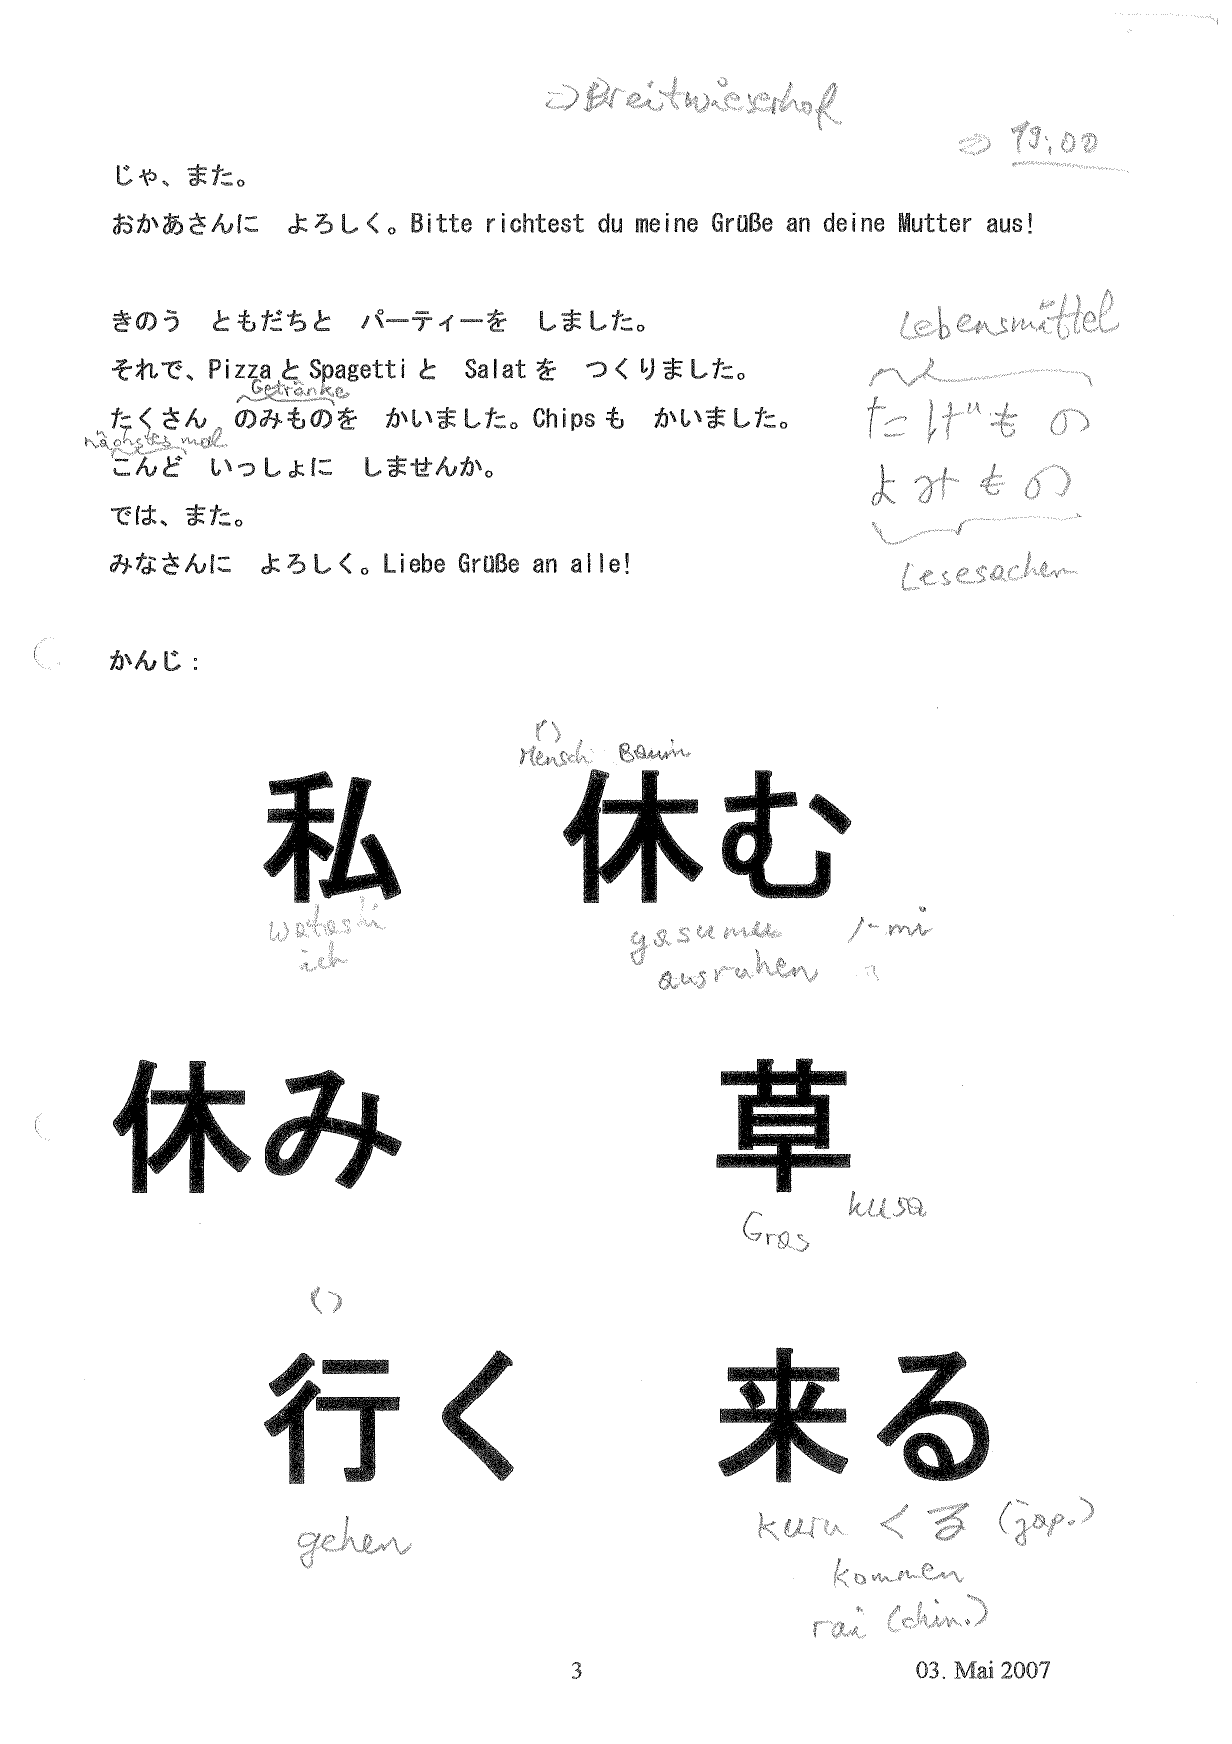 ⇒ Breitwieserhof
⇒ 19:00
じゃ、また。
おかあさんに よろしく。Bitte richtest du meine Grüße an deine Mutter aus!
きのう ともだちと パーティーを しました。
Lebensmittel
それで、PizzaとSpagettiと Salatを つくりました。
Getränke
たくさん のみものを かいました。Chipsも かいました。
たげもの
nächstes mal
こんど いっしょに しませんか。
よみもの
では、また。
みなさんに よろしく。Liebe Grüße an alle!
Lesesachen
かんじ:
Mensch Baum
私 休む
watashi
ich
yasumu /-mi
ausruhen
休み 草
kusa
Gras
行く 来る
gehen
kuru くる (jap.)
kommen
rai (chin.)
3 03. Mai 2007